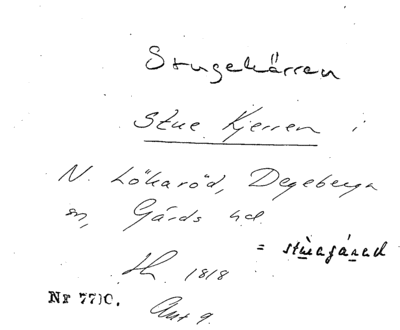 Stugekärren
Stue Kjerren i
N. Lökaröd, Degeberga
sn, Gärds hd.
= stuagáred
1818
Nr 7710.